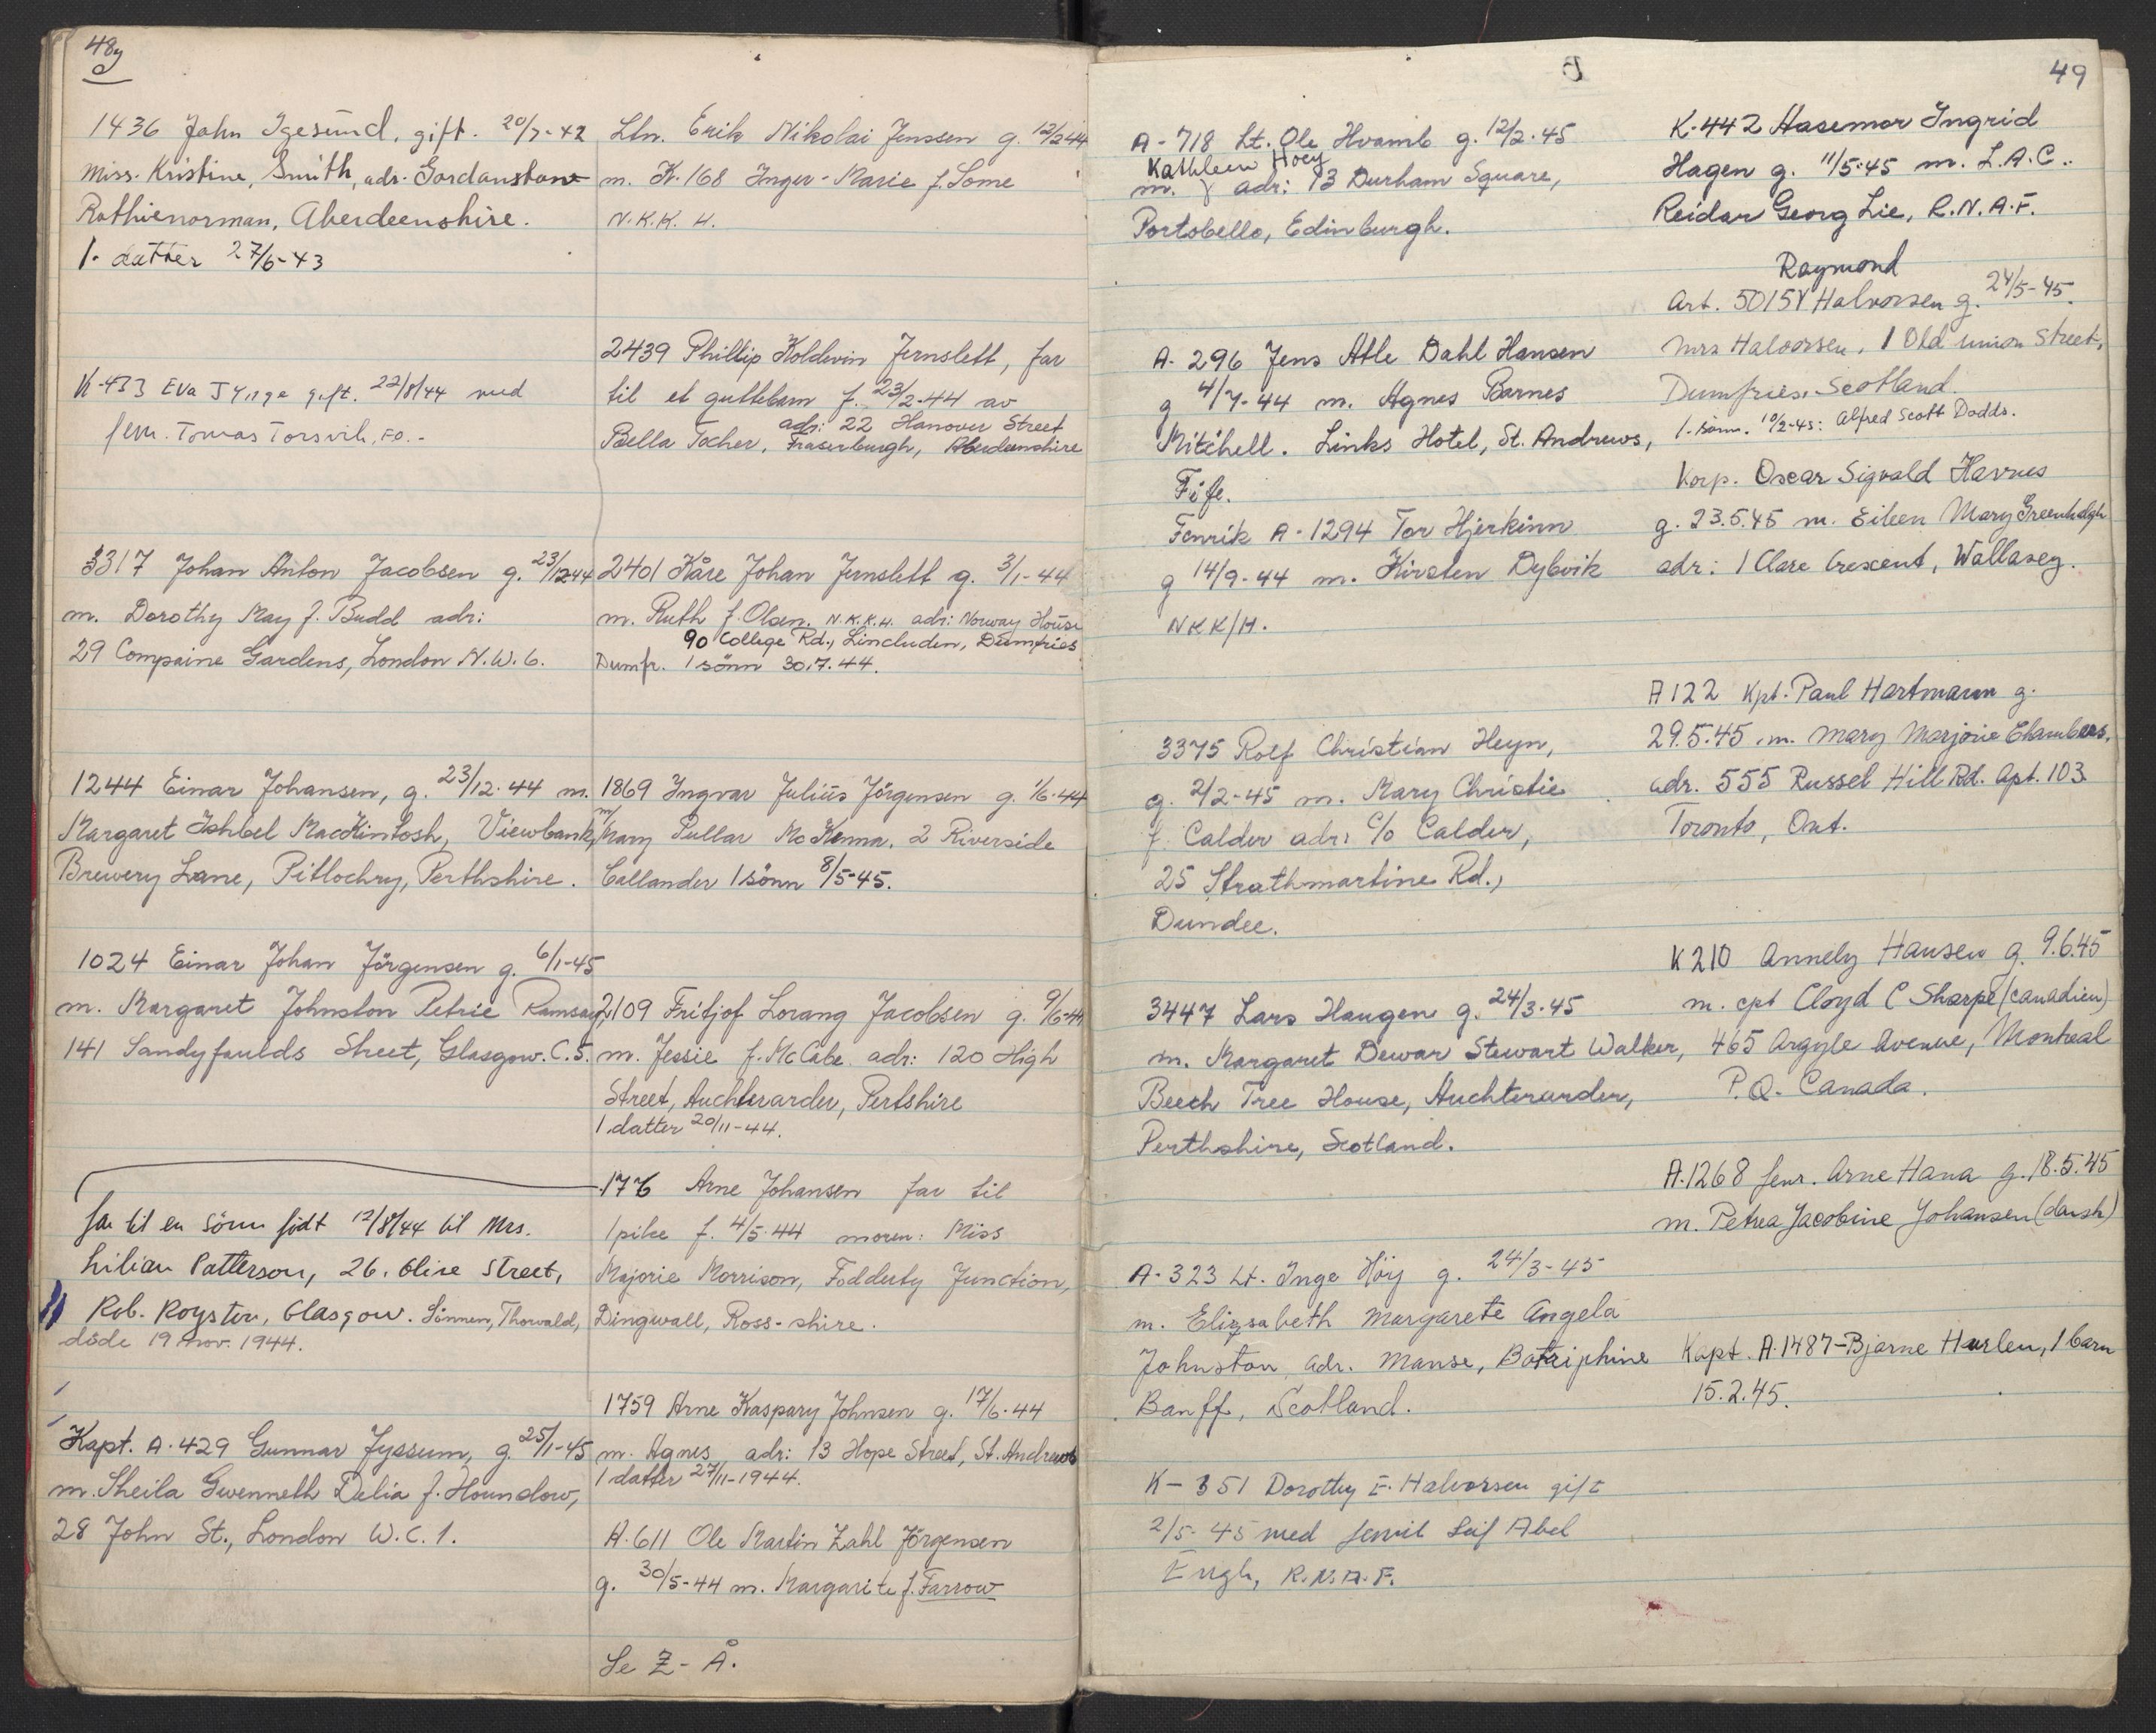 48
1436 John Igesund, gift. 20/7-42
Miss. Kristine, Smith, adr. Gordonstown
Rothienorman, Aberdeenshire.
1. datter 27/6-43
K-433 Eva gift. 22/8/44 med
fenr. Tomas Torsvik, FO.-
3317 Johan Anton Jacobsen g. 23/12-44
m. Dorothy May f. Budd adr:
29 Compaine Gardens, London N.W.6.
1244 Einar Johansen, g. 23/12-44 m.
Margaret Ishbel MacKintosh, Viewbank,
Brewery Lane, Pitlochry, Perthshire.
1024 Einar Johan Jörgensen g. 6/1-45
m. Margaret Johnston Petrie Ramsay,
141 Sandyfaulds Street, Glasgow. C.5.
far til en sönn födt 12/8/44 til Mrs.
Lilian Patterson, 26. Olive Street,
Rob. Royston, Glasgow. Sönnen, Thorvald,
döde 19 nov. 1944.
Kapt. A.429 Gunnar Jyssum, g. 25/1-45
m. Sheila Gwenneth Delia f. Hounslow,
28 John St., London W.C.1.
Ltn. Erik Nikolai Jenssen g. 12/2-44
m. K.168 Inger-Marie f. Lome
N.K.K.H.
2439 Phillip Koldevin Jernslett, far
til et guttebarn f. 23/2-44 av
adr: 22 Hanover Street
Bella Tocher, Fraserburgh, Aberdeenshire
2401 Kåre Johan Jernslett g. 3/1-44
m. Ruth f. Olsen. N.K.K.H. adr: Norway House
90 College Rd., Lincluden, Dumfries
Dumfr. 1 sönn 30.7.44.
1869 Ingvar Julius Jörgensen g. 1/6-44
m/ Mary Pullar McKenna. 2 Riverside
Callander 1 sönn 8/5-45.
2109 Fritjof Lorang Jacobsen g. 9/6-44
m. Jessie f. McCabe. adr: 120 High
Street, Auchterarder, Pertshire
1 datter 20/11-44.
176 Arne Johansen far til
1 pike f. 4/5-44 moren: Miss
Majorie Morrison, Fodduty Junction,
Dingwall, Ross-shire.
1759 Arne Kaspary Johnsen g. 17/6-44
m. Agnes adr: 13 Hope Street, St. Andrews
1 datter 27/11-1944.
A.611 Ole Martin Zahl Jörgensen
g. 30/5-44 m. Margarite f. Farrow
Se Z-Å.
49
A-718 Lt. Ole Hvamb g. 12/2-45
Kathleen Hoey
m. adr: 13 Durham Square,
Portobello, Edinburgh.
A-296 Jens Atle Dahl Hansen
g 4/7-44 m. Agnes Barnes
Mitchell. Links Hotel, St. Andrews,
Fife.
Fenrik A-1294 Tor Hjerkinn
g 14/9-44 m. Kirsten Dybvik
NKK/H.
3375 Rolf Christian Heyn,
g. 2/2-45 m. Mary Christie
f. Calder adr: c/o Calder,
25 Strathmartine Rd.,
Dundee.
3447 Lars Haugen g. 24/3-45
m. Margaret Dewar Stewart Walker,
Beech Tree House, Auchterarder,
Perthshire, Scotland.
A-323 Lt. Inge Höy g. 24/3-45
m. Elizsabeth Margarete Angela
Johnston adr. Manse, Botriphine
Banff, Scotland.
K-351 Dorothy E. Halvorsen gift
2/5-45 med fenrik Leif Abel
Engh, R.N.A.F.
K-442 Aasemor Ingrid
Hagen g. 11/5-45 m. L.A.C.
Reidar Georg Lie, R.N.A.F.
Raymond
Art. 5015 Halvorsen g. 24/5-45.
Mrs Halvorsen, 1 Old Union Street,
Dumfries, Scotland
1. sönn. 10/2-43: Alfred Scott Dodds.
Korp. Oscar Sigvald Havnes
g. 23.5.45 m. Eileen Mary Greenhalgh
adr: 1 Clare Crescent, Wallasey.
A122 Kpt. Paul Hartmann g.
29.5.45. m. Mary Marjorie Chambers,
adr. 555 Russel Hill Rd. Apt. 103
Toronto, Ont.
K210 Annely Hansen g. 9.6.45
m. cpt Cloyd C Sharpe (canadien)
465 Argyle Avenue, Montreal
P.Q. Canada.
A.1268 fenr. Arne Hana g. 18.5.45
m. Petrea Jacobine Johansen (dansk)
Kapt. A.1487-Bjarne Haslen, 1 barn
15.2.45.